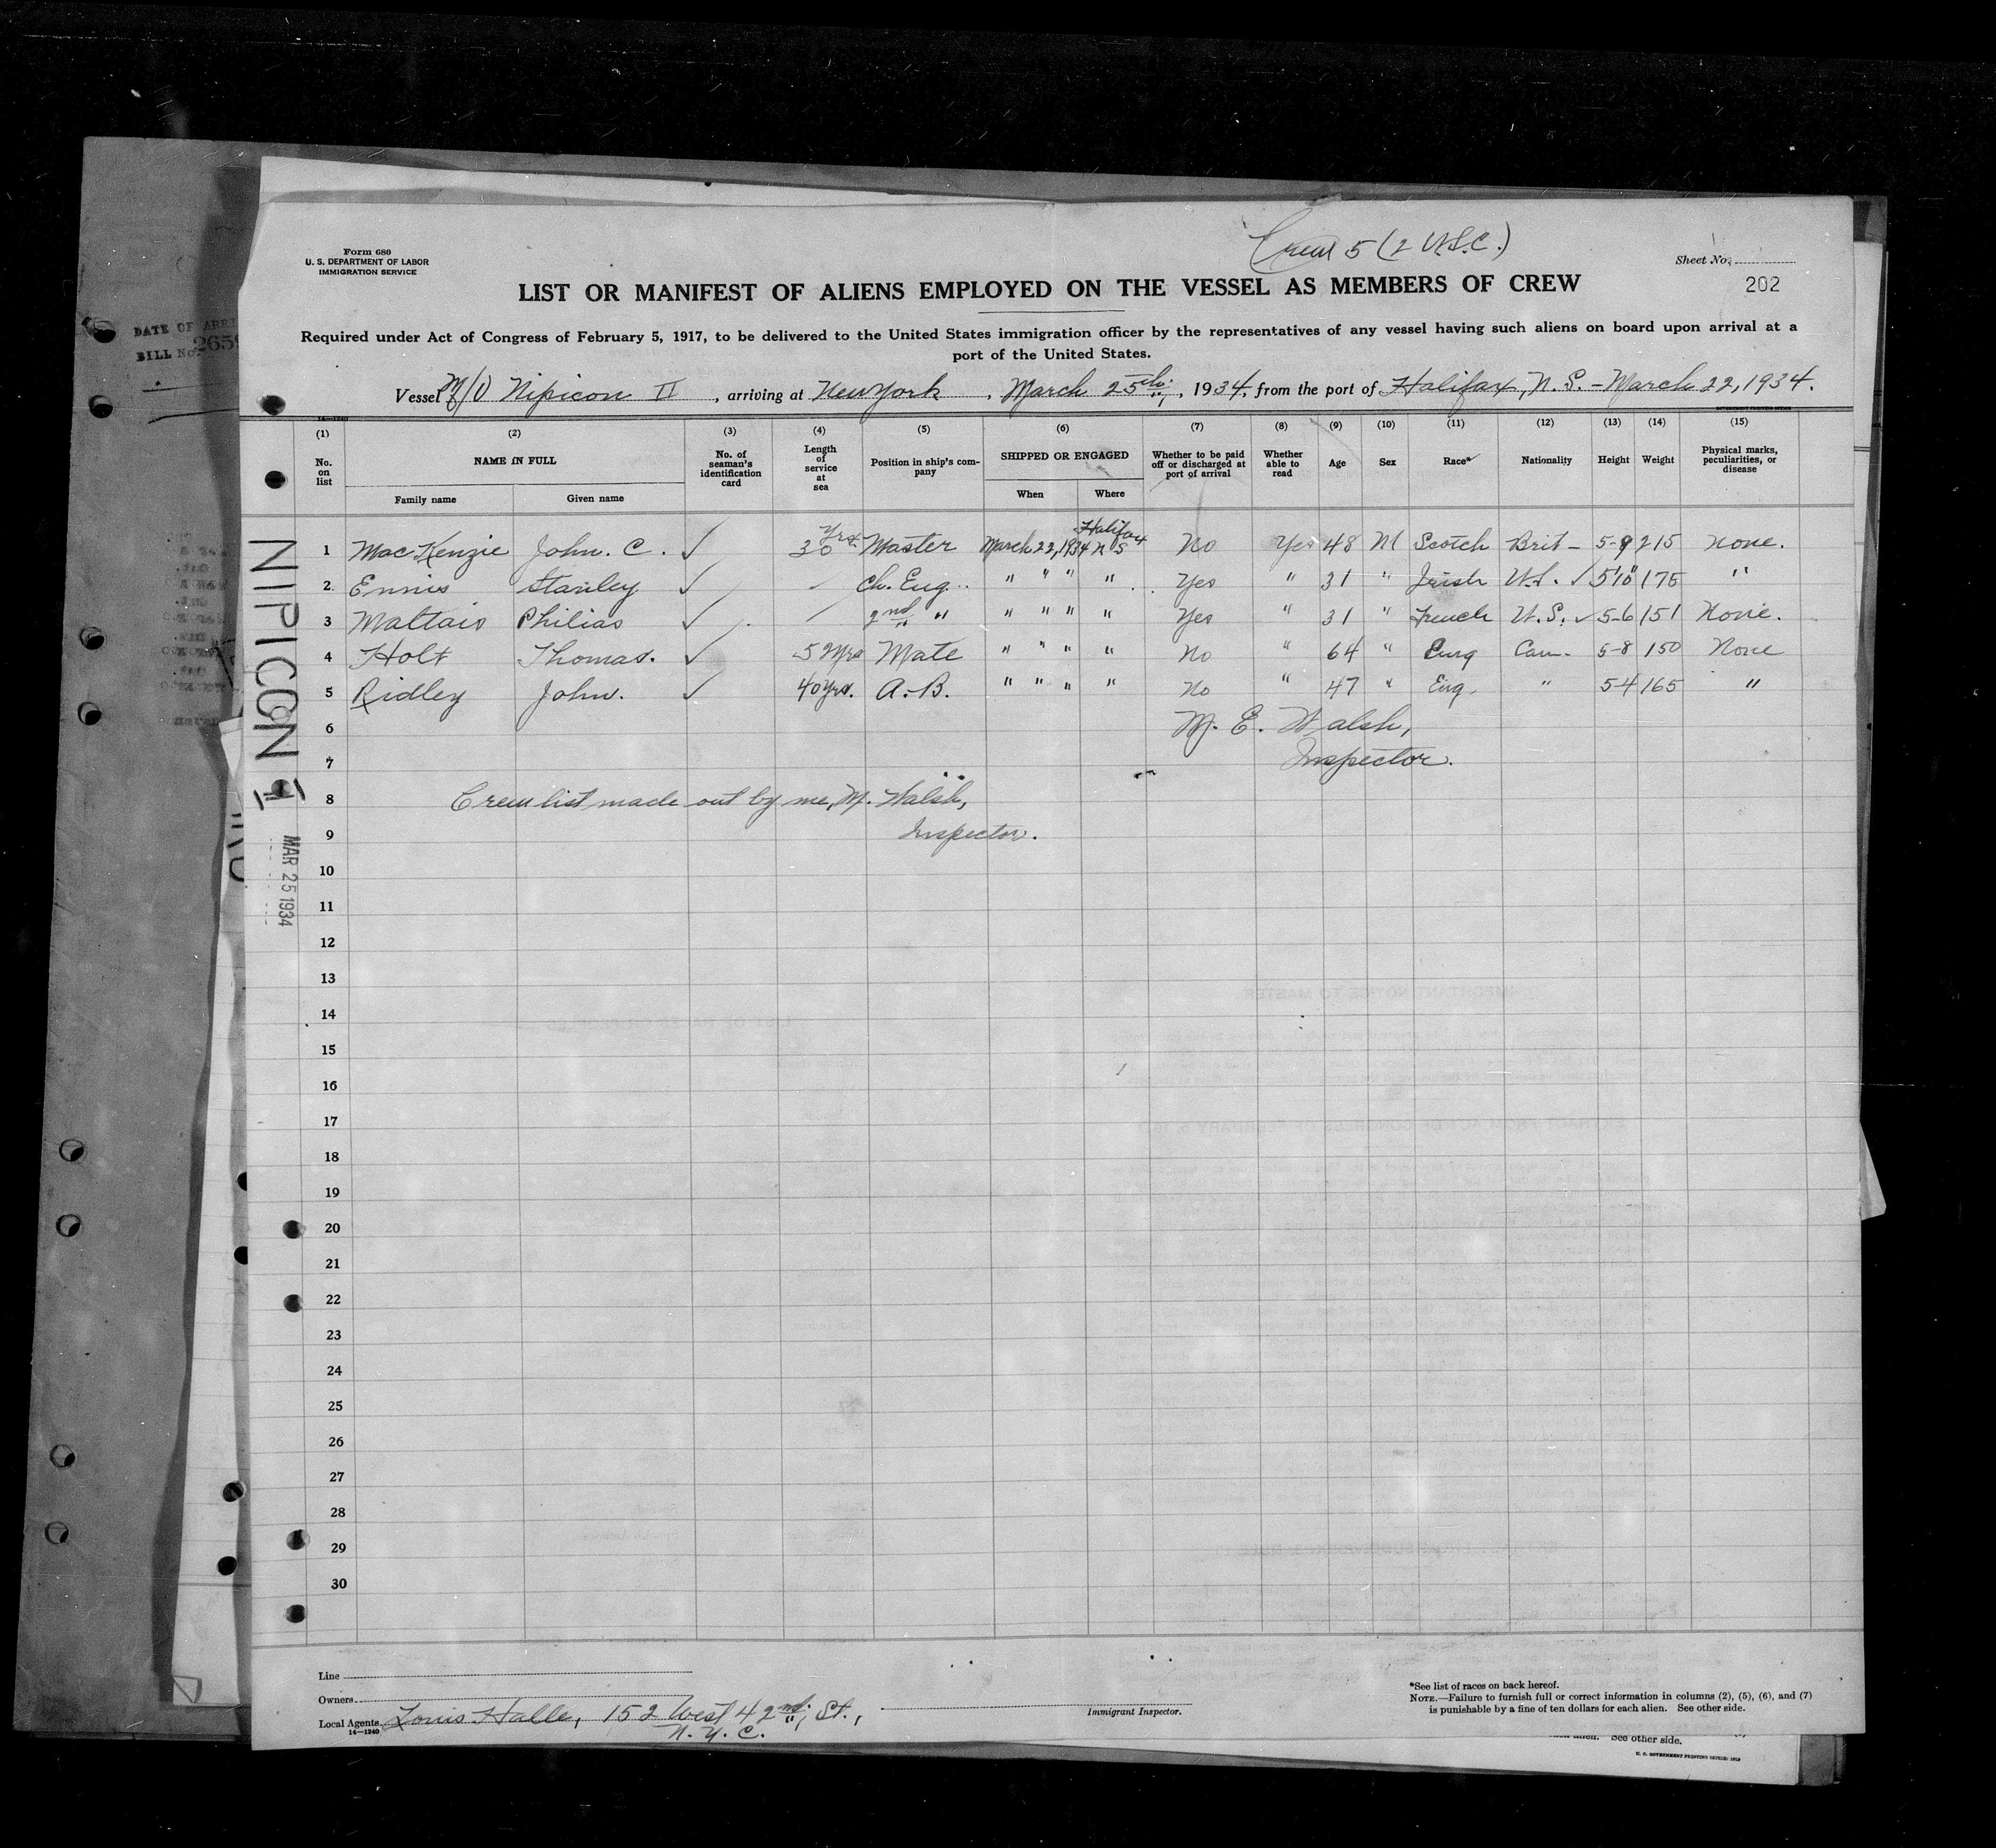 Crew 5 (2 U.S.C.)
Form 680
U. S. DEPARTMENT OF LABOR
IMMIGRATION SERVICE
Sheet No.
202
LIST OR MANIFEST OF ALIENS EMPLOYED ON THE VESSEL AS MEMBERS OF CREW
Required under Act of Congress of February 5, 1917, to be delivered to the United States immigration officer by the representatives of any vessel having such aliens on board upon arrival at a
port of the United States.
Vessel M/V Nipicon II, arriving at New York, March 25th, 1934, from the port of Halifax, N.S. - March 22, 1934.
14-1240
(1) (2) (3) (4) (5) (6) (7) (8) (9) (10) (11) (12) (13) (14) (15)
No. on list NAME IN FULL No. of seaman's identification card Length of service at sea Position in ship's company SHIPPED OR ENGAGED Whether to be paid off or discharged at port of arrival Whether able to read Age Sex Race* Nationality Height Weight Physical marks, peculiarities, or disease
Family name Given name When Where
1 MacKenzie John. C. ✓ 30 Yrs. Master March 22, 1934 Halifax N S No Yes 48 M Scotch Brit - 5-9 215 None.
2 Ennis Stanley ✓ Ch. Eng. " " " " Yes " 31 " Irish U.S. ✓ 5'10" 175 "
3 Maltais Philias ✓ 2nd " " " " " Yes " 31 " French U.S. ✓ 5-6 151 None.
4 Holt Thomas. ✓ Yrs Mate " " " " No " 64 " Eng Can- 5-8 150 None
5 Ridley John. ✓ 40 yrs. A.B. " " " " No " 47 " Eng. " 5-4 165 "
6 M. E. Walsh,
7 Inspector.
8 Crew list made out by me, M. Walsh,
9 Inspector.
10
11
12
13
14
15
16
17
18
19
20
21
22
23
24
25
26
27
28
29
30
NIPICON II
MAR 25 1934
DATE OF ARRI
BILL No. 265
Line
Owners
Local Agents Louis Halle, 152 West 42nd St.,
N.Y.C.
14-1240
Immigrant Inspector.
*See list of races on back hereof.
NOTE.—Failure to furnish full or correct information in columns (2), (5), (6), and (7)
is punishable by a fine of ten dollars for each alien. See other side.
See other side.